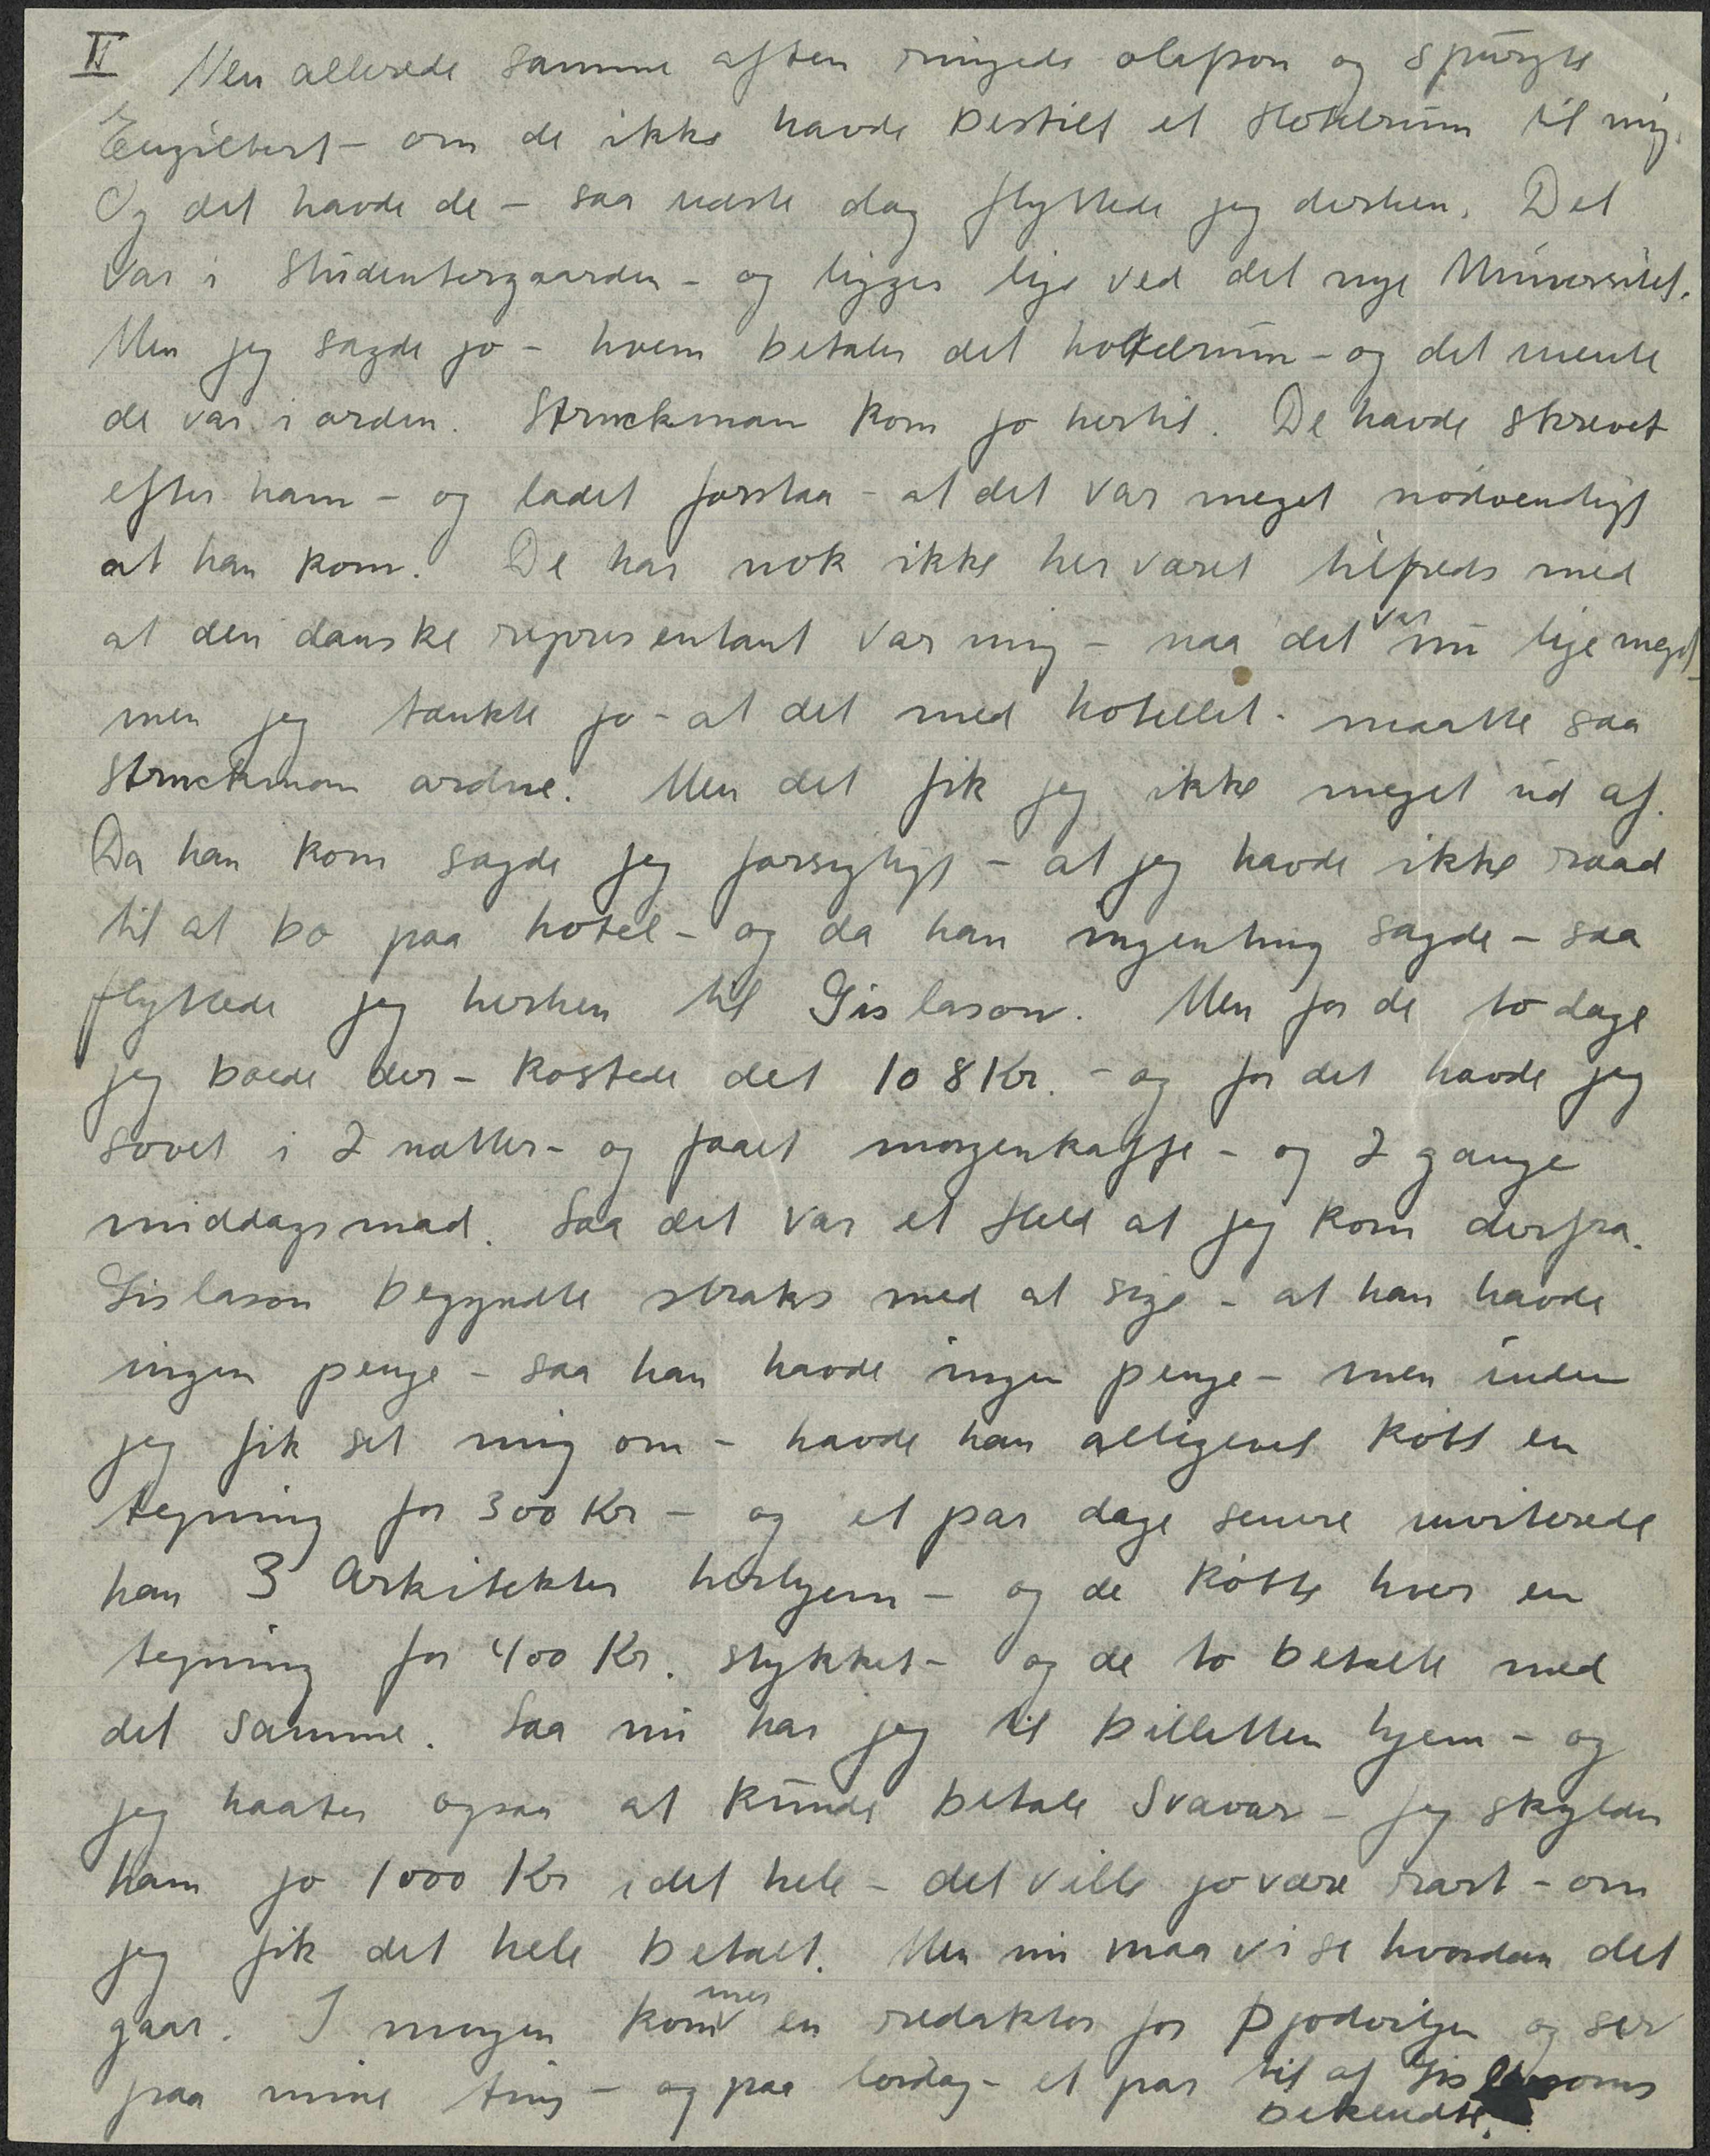 II Men allerede samme aften ringede olafson og spurgte
Engilbert - om de ikke havde bestilt et Hotelrum til mig.
Og det havde de - saa næste dag flyttede jeg derhen. Det
var i Studentergaarden - og ligger lige ved det nye Universitet.
Men jeg sagde jo - hvem betaler det hotelrum - og det mente
de var i orden. Struckman kom jo hertil. De havde skrevet
efter ham - og ladet forstaa - at det var meget nødvendigt
at han kom. De har nok ikke her været tilfreds med
at den danske representant var mig - naa det var nu lige meget -
men jeg tænkte jo - at det med hotellet - maatte saa
Struckman ordne. Men det fik jeg ikke meget ud af.
Da han kom sagde jeg forsigtigt - at jeg havde ikke raad
til at bo paa hotel - og da han ingenting sagde - saa
flyttede jeg herhen til Gislason. Men for de to dage
jeg boede der - kostede det 108 Kr. - og for det havde jeg
sovet i 2 nætter - og faaet morgenkaffe - og 2 gange
middagsmad. Saa det var et Held at jeg kom derfra.
Gislason begyndte straks med at sige - at han havde
ingen penge - saa han havde ingen penge - men inden
jeg fik set mig om - havde han alligevel købt en
tegning for 300 Kr - og et par dage senere inviterede
han 3 Arkitekter herhjem - og de købte hver en
tegning for 400 Kr. stykket - og de to betalte med
det samme. Saa nu har jeg til billetten hjem - og
jeg haaber ogsaa at kunde betale Svavar - jeg skylder
ham jo 1000 Kr i det hele - det ville jo være rart - om
jeg fik det hele betalt. Men nu maa vi se hvordan det
gaar. I morgen kommer en redaktør for Þjodviljen og ser
paa mine ting - og paa lørdag - et par til af Gislasons
bekendte.